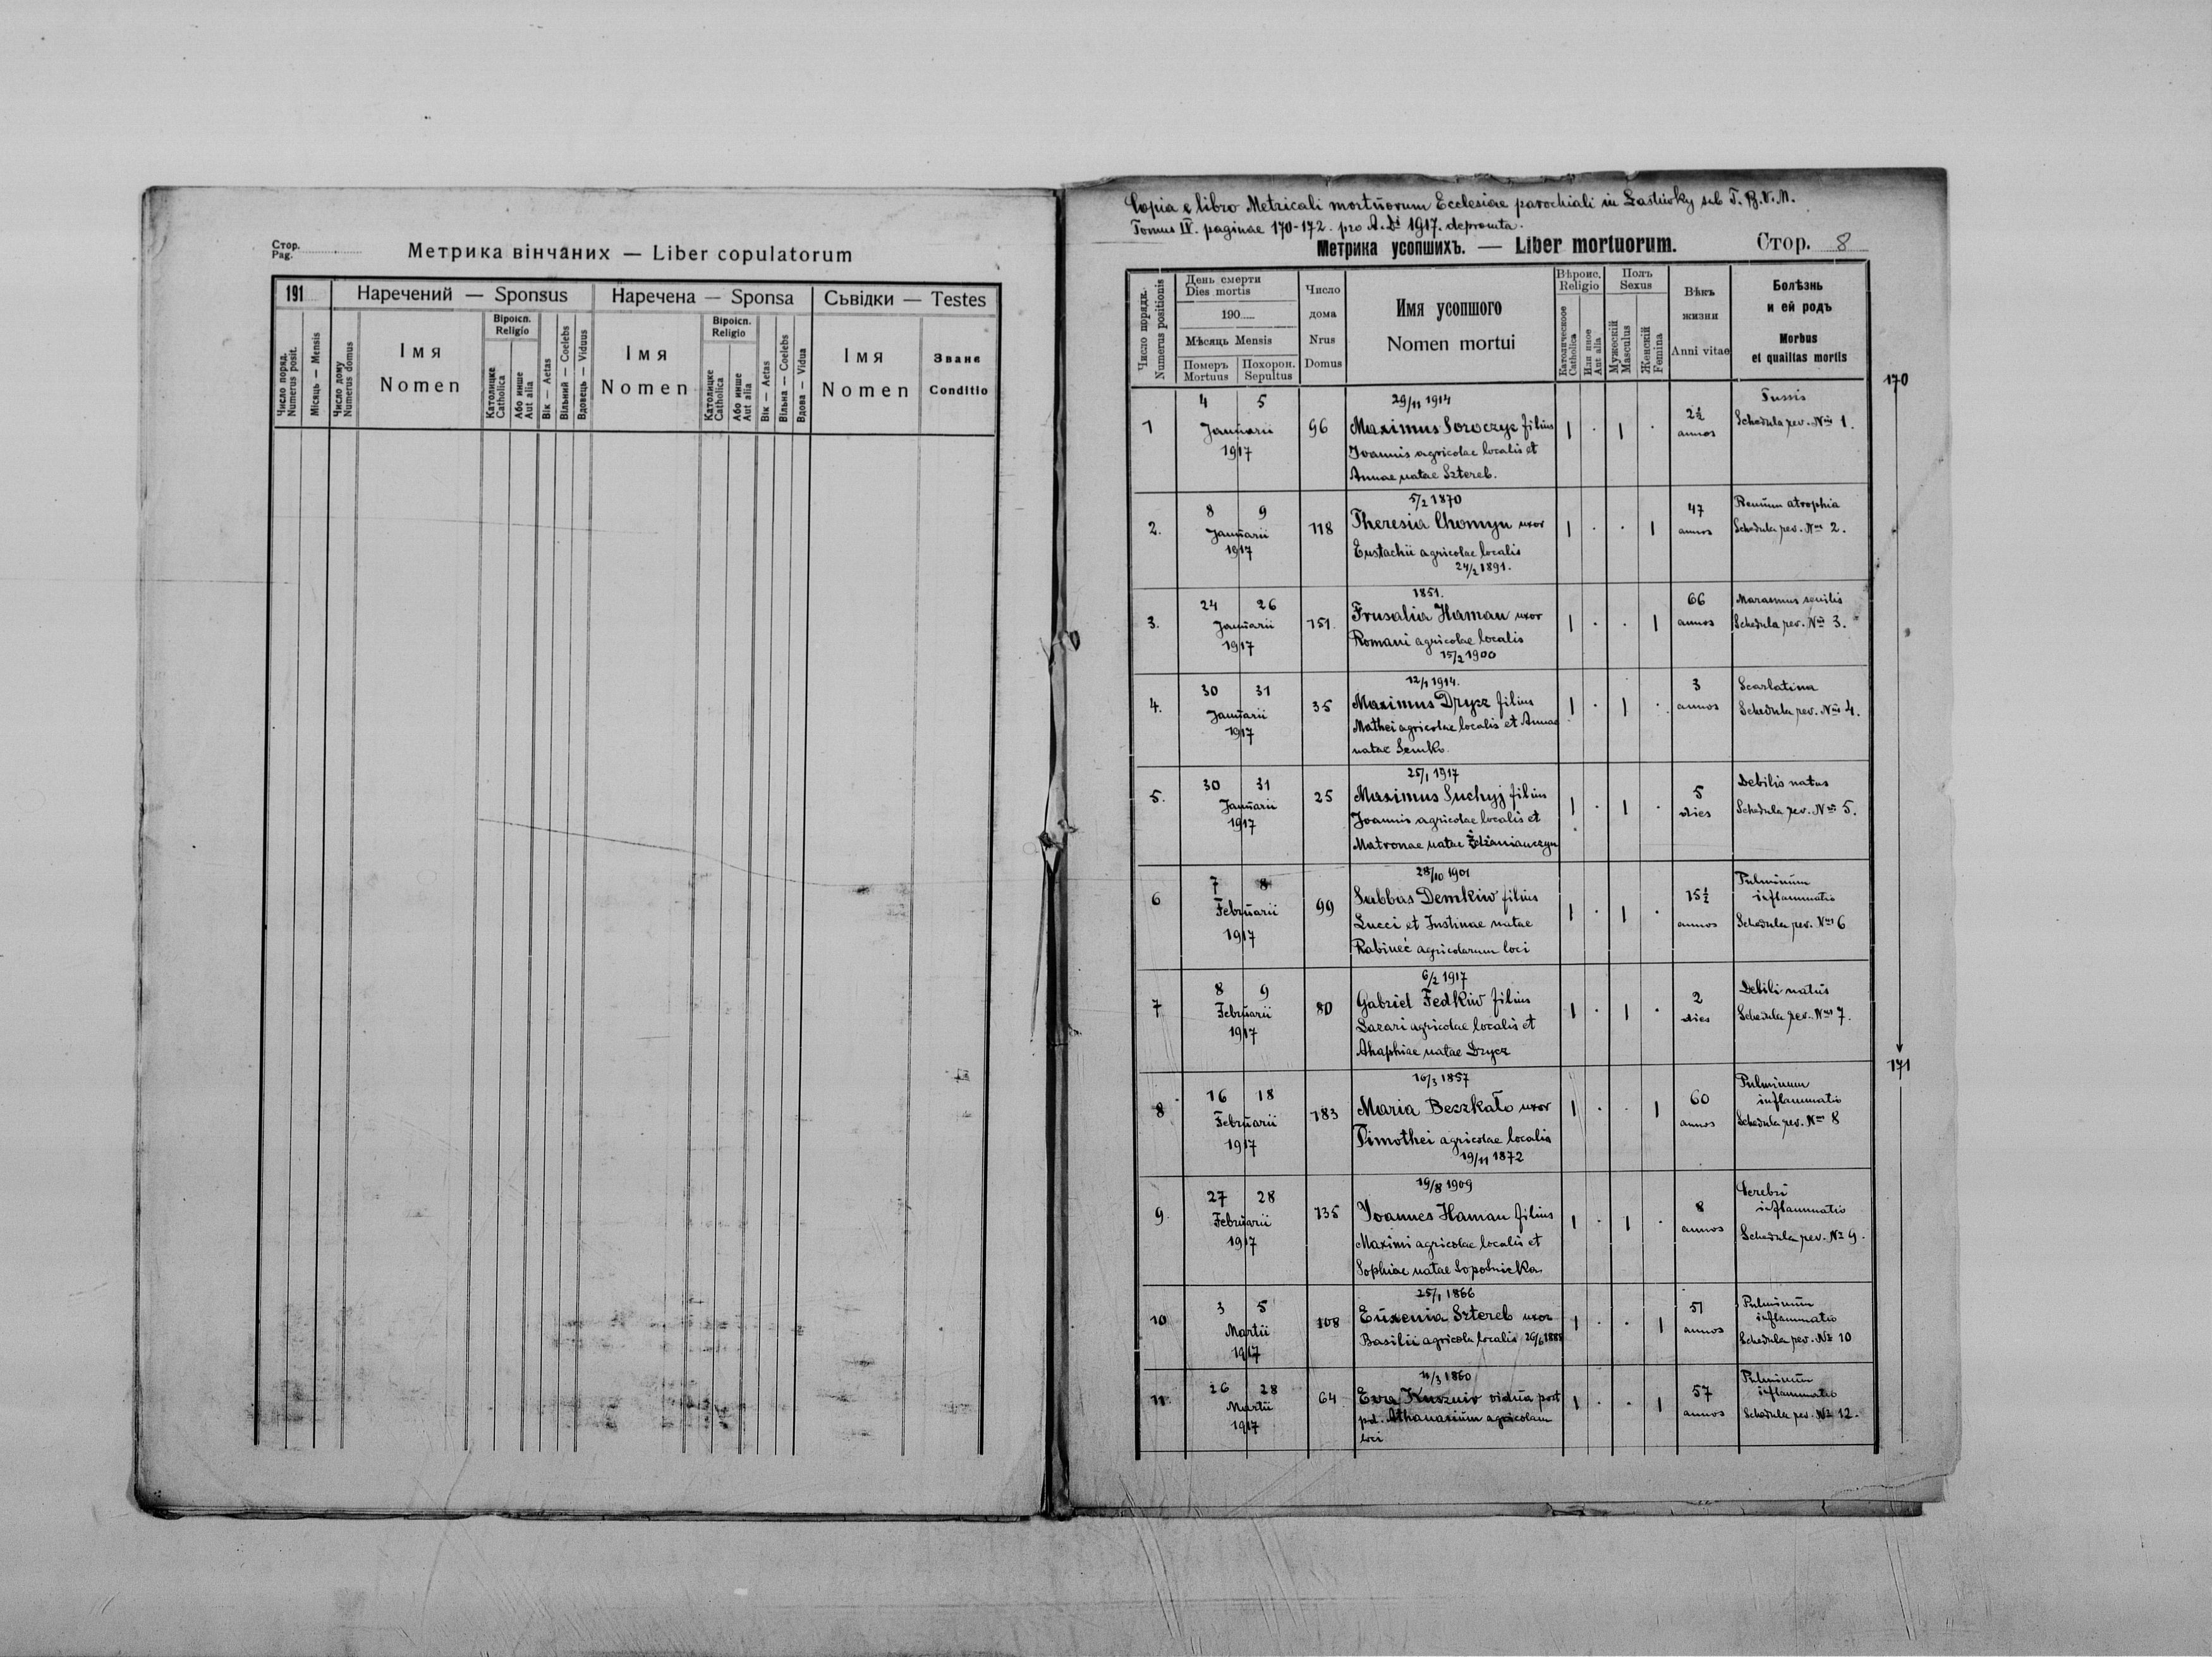 Стор.
Pag.
Метрика вінчаних — Liber copulatorum
191
Наречений — Sponsus
Наречена — Sponsa
Сьвідки — Testes
Число поряд.
Numerus posit.
Місяць — Mensis
Число дому
Numerus domus
Імя
Nomen
Віроісп.
Religio
Католицке
Catholica
Або инше
Aut alia
Вік — Aetas
Вільний — Coelebs
Вдовець — Viduus
Імя
Nomen
Віроісп.
Religio
Католицке
Catholica
Або инше
Aut alia
Вік — Aetas
Вільна — Coelebs
Вдова — Vidua
Імя
Nomen
Званє
Conditio
Copia e libro Metricali mortuorum Ecclesiae parochiali in Lastiwky sub T. B. V. M.
Tomus IV. paginae 170-172. pro A. Di 1917. deprompta.
Метрика усопшихъ. — Liber mortuorum.
Стор. 8
Число порядк.
Numerus positionis
День смерти
Dies mortis
190
Мѣсяць Mensis
Померъ
Mortuus
Похорон.
Sepultus
Число
дома
Nrus
Domus
Имя усопшого
Nomen mortui
Вѣроис.
Religio
Католическое
Catholica
Или иное
Aut alia
Полъ
Sexus
Мужескій
Masculus
Женскій
Femina
Вѣкъ
жизни
Anni vitae
Болѣзнь
и ей родъ
Morbus
et qualitas mortis
170
1
4 5
Januarii
1917
96
29/11 1914
Maximus Soroczyc filius
Joannis agricolae localis et
Annae natae Sztereb.
2½
annos
Tussis
Schedula rev. Nro 1.
2.
8 9
Januarii
1917
118
5/2 1870
Theresia Chomyn uxor
Eustachii agricolae localis
24/2 1891.
47
annos
Renum atrophia
Schedula rev. Nro 2.
3.
24 26
Januarii
1917
151
1851.
Frusalia Haman uxor
Romani agricolae localis
15/2 1900
66
annos
Marasmus senilis
Schedula rev. Nro 3.
4.
30 31
Januarii
1917
35
12/1 1914.
Maximus Drycz filius
Mathei agricolae localis et Annae
natae Semko.
3
annos
Scarlatina
Schedula rev. Nro 4.
5.
30 31
Januarii
1917
25
25/1 1917
Maximus Suchyj filius
Joannis agricolae localis et
Matronae natae
5
dies
Debilis natus
Schedula rev. Nro 5.
6
7 8
Februarii
1917
99
28/10 1901
Sabbas Demkiw filius
Lucci et Justinae natae
Rabineć agricolarum loci
15½
annos
Pulminum
inflammatio
Schedula rev. Nro 6
7
8 9
Februarii
1917
80
6/2 1917
Gabriel Fedkiw filius
Lazari agricolae localis et
Ahaphiae natae Drycz
2
dies
Debili natus
Schedula rev. Nro 7.
171
8
16 18
Februarii
1917
183
16/3 1857
Maria Beszkało uxor
Timothei agricolae localis
19/11 1872
60
annos
Pulminum
inflammatio
Schedula rev. Nro 8
9
27 28
Februarii
1917
135
19/8 1909
Joannes Haman filius
Maximi agricolae localis et
Sophiae natae Sopotnicka
8
annos
Cerebri
inflammatio
Schedula rev. No 9.
10
3 5
Martii
1917
108
25/1 1866
Euxenia Sztereb uxor
Basilii agricola localis 26/6 1888
51
annos
Pulminum
inflammatio
Schedula rev. No 10
11
26 28
Martii
1917
64
11/3 1860
Eva Kuszniv vidua post
pd. Athanasium agricolam
loci
57
annos
Pulminum
inflammatio
Schedula rev. No 12.